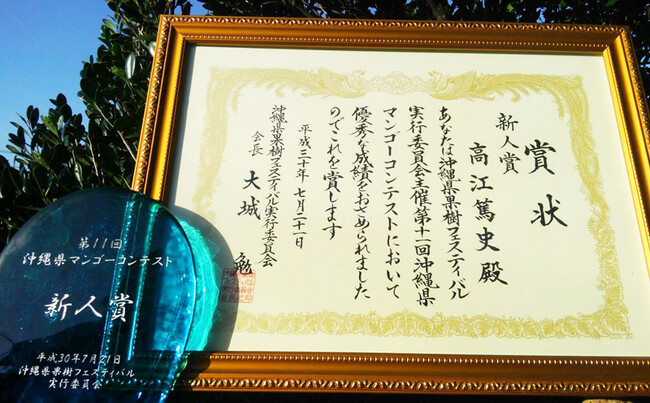 賞状
新人賞
高江篤史殿
あなたは沖縄県果樹フェスティバル
実行委員会主催第十一回沖縄県
マンゴーコンテストにおいて
優秀な成績をおさめられました
のでこれを賞します
平成三十年七月二十一日
沖縄県果樹フェスティバル実行委員会
会長 大城 勉
第11回
沖縄県マンゴーコンテスト
新人賞
平成30年7月21日
沖縄県果樹フェスティバル
実行委員会